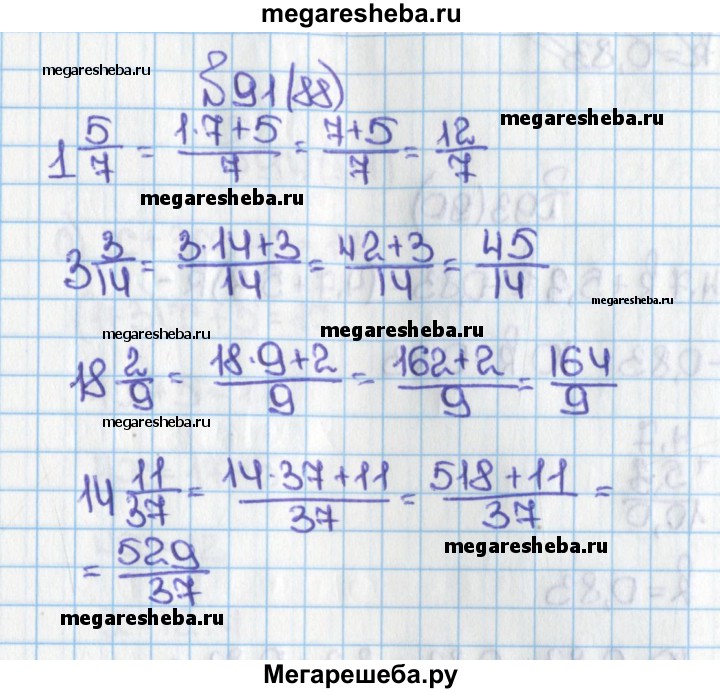 megaresheba.ru
megaresheba.ru
№91(88)
megaresheba.ru
1 5/7 = (1·7+5)/7 = (7+5)/7 = 12/7
megaresheba.ru
3 3/14 = (3·14+3)/14 = (42+3)/14 = 45/14
megaresheba.ru
megaresheba.ru
megaresheba.ru
18 2/9 = (18·9+2)/9 = (162+2)/9 = 164/9
megaresheba.ru
14 11/37 = (14·37+11)/37 = (518+11)/37 =
megaresheba.ru
= 529/37
megaresheba.ru
Мегарешеба.ру